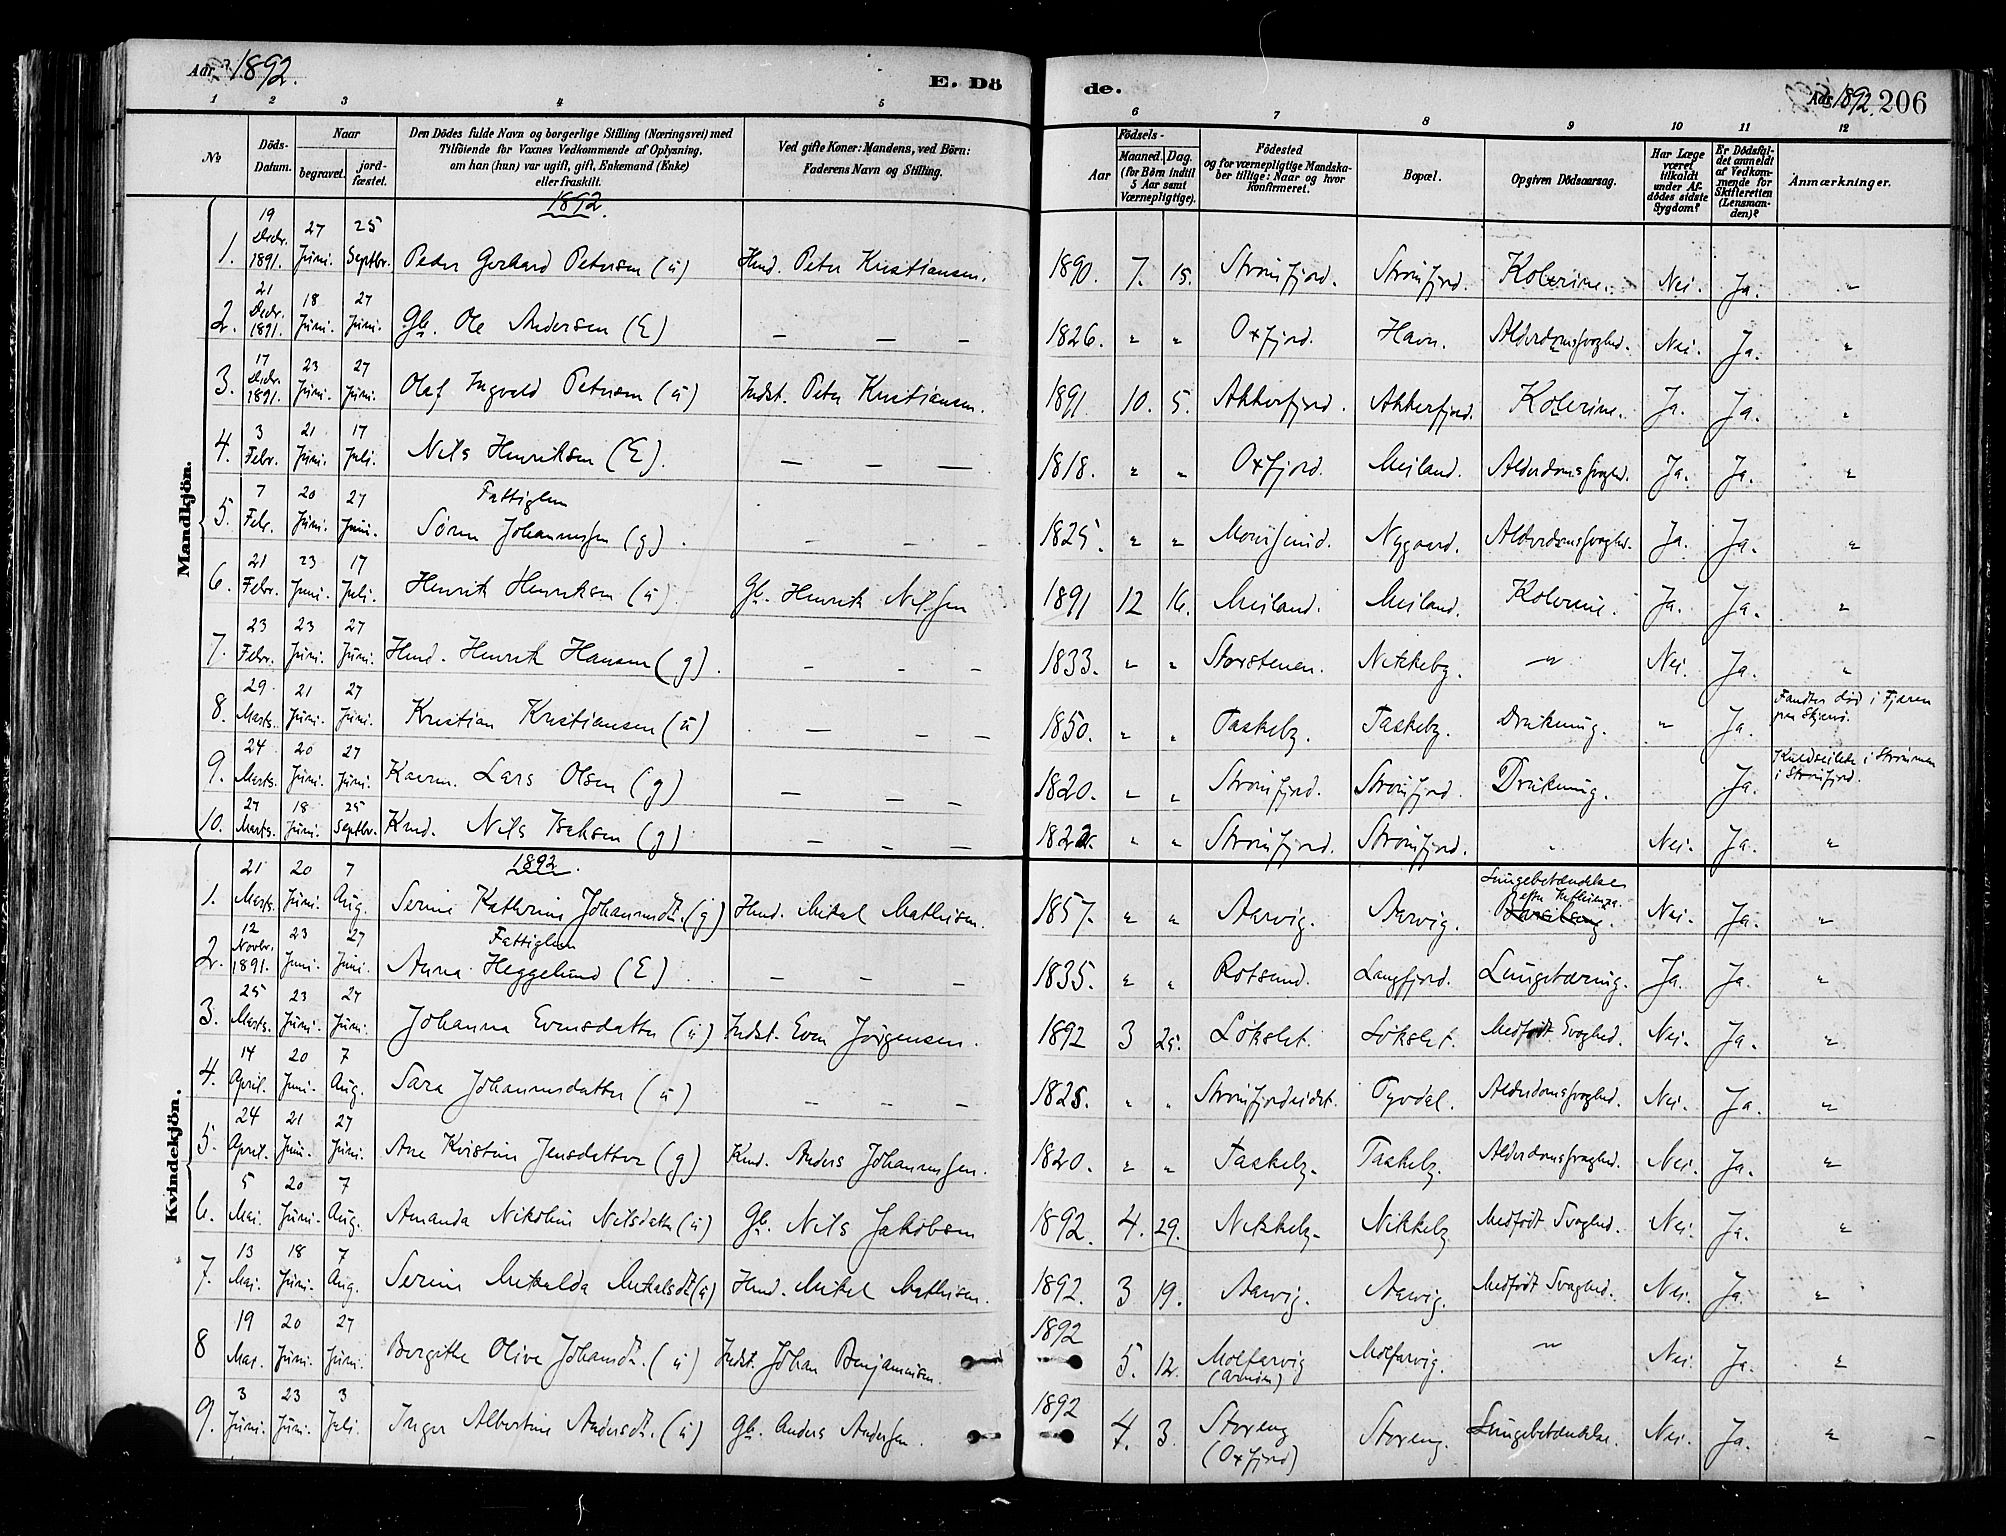 Aar 1892. E. Dö de. Aar 1892. 206
1 2 3 4 5 6 7 8 9 10 11 12
No
Döds-Datum.
Naar
begravet.
jord-fæstet.
Den Dödes fulde Navn og borgerlige Stilling (Næringsvei) med
Tilföiende for Voxnes Vedkommende af Oplysning,
om han (hun) var ugift, gift, Enkemand (Enke)
eller fraskilt.
Ved gifte Koner: Mandens, ved Börn:
Faderens Navn og Stilling.
Aar
Födsels-
Maaned. Dag.
(for Börn indtil
5 Aar samt
Værnepligtige).
Födested
og for værnepligtige Mandska-
ber tillige: Naar og hvor
Konfirmeret.
Bopæl.
Opgiven Dödsaarsag.
Har Læge
været
tilkaldt
under Af-
dödes sidste
Sygdom?
Er Dödsfal-
det anmeldt
af Vedkom-
mende for
Skifteretten
(Lensman-
den)?
Anmærkninger.
Mandkjön.
1892.
1. 19 Decbr. 1891. 27 Juni. 25 Septbr. Peder Gerhard Petersen (ú) Hmd. Peter Kristiansen. 1890. 7. 15. Strömfjord. Strömfjord. Kolerine. Nei. Ja. "
2. 21 Decbr. 1891. 18 Juni. 27 Juni. Gb. Ole Andersen (E) — — — 1826. " " Oxfjord. Havn. Alderdomssvaghed. Nei. Ja. "
3. 17 Decbr. 1891. 23 Juni. 27 Juni. Olaf Ingvald Petersen (ú) Indst. Peter Kristiansen. 1891 10. 5. Akkarfjord. Akkarfjord. Kolerine. Ja. Ja. "
4. 3 Febr. 21 Juni. 17 Juli. Nils Henriksen (E). — — — 1818. " " Oxfjord. Meiland. Alderdomssvaghed. Ja. Ja. "
5. 7 Febr. 20 Juni. 27 Juni. Fattiglem
Sören Johannessen (g). — — — 1825. " " Maursund. Nygaard. Alderdomssvaghed. Ja. Ja. "
6. 21 Febr. 23 Juni. 17 Juli. Henrik Henriksen (ú). Gb. Henrik Nilssen 1891 12 16. Meiland. Meiland. Kolerine. Ja. Ja. "
7. 23 Febr. 23 Juni. 27 Juni. Hmd. Henrik Hansen (g). — — — 1833. " " Storstenen. Nikkeby. " Nei. Ja. "
8. 29 Marts. 21 Juni. 27 Juni. Kristian Kristiansen (ú) — — — 1850. " " Taskeby. Taskeby. Drukning. " Ja. Fandtes död i Fjæren
9. 24 Marts. 20 Juni. 27 Juni. Lars Olsen (g) — — — 1820. " " Strömfjord. Strömfjord. Drukning. Ja. Kuldseilede i Strömmen
i Strömfjord.
10. 27 Marts. 18 Juni. 25 Septbr. Kmd. Nils Isaksen (g) — — — 1822. " " Strömfjord. Strömfjord. " Nei. Ja. "
Kvindekjön.
1892.
1. 21 Marts. 20 Juni. 7 Aug. Serine Kathrine Johannesdt. (g) Hmd. Mikal Mathisen. 1857. " " Aarvig. Aarvig. Lungebetændelse
efter Influenza. Barselseng. Nei. Ja. "
2. 12 Novbr. 1891. 23 Juni. 27 Juni. Fattiglem
Anna Heggelund (E) — — — 1835. " " Rotsund. Langfjord. Lungetæring. Ja. Ja. "
3. 25 Marts. 23 Juni. 27 Juni. Johanna Evensdatter (ú) Indst. Even Jörgensen. 1892 3 25. Lökslet. Lökslet. Medfödt Svaghed. Nei. Ja. "
4. 14 April. 20 Juni. 7 Aug. Sara Johannesdatter (ú) — — — 1825. " " Strömfjordeidet. Tyvdal. Alderdomssvaghed. Nei. Ja. "
5. 24 April. 21 Juni. 27 Juni. Ane Kristine Jensdatter (g) Kmd. Anders Johannessen. 1820. " " Taskeby. Taskeby. Alderdomssvaghed. Nei. Ja. "
6. 5 Mai. 20 Juni. 7 Aug. Amanda Nikoline Nilsdatter (ú) Gb. Nils Jakobsen 1892. 4. 29. Nikkeby. Nikkeby Medfödt Svaghed. Nei. Ja. "
7. 13 Mai. 18 Juni. 7 Aug. Serine Mikalda Mikalsdt (ú) Hmd. Mikal Mathisen. 1892. 3 19. Aarvig. Aarvig. Medfödt Svaghed. Nei. Ja. "
8 19 Mai. 20 Juni. 27 Juni. Bergithe Olive Johansdt. (ú) Indst. Johan Benjaminsen. 1892 5. 12. Molfarvig
(Arnöen) Molfarvig. " Nei. Ja. "
9. 3 Juni. 23 Juni. 3 Juli. Inger Albertine Andersdt. (ú) Gb. Anders Andersen. 1892 4. 3. Storeng
(Oxfjord) Storeng. Lungebetændelse. Nei. Ja. "